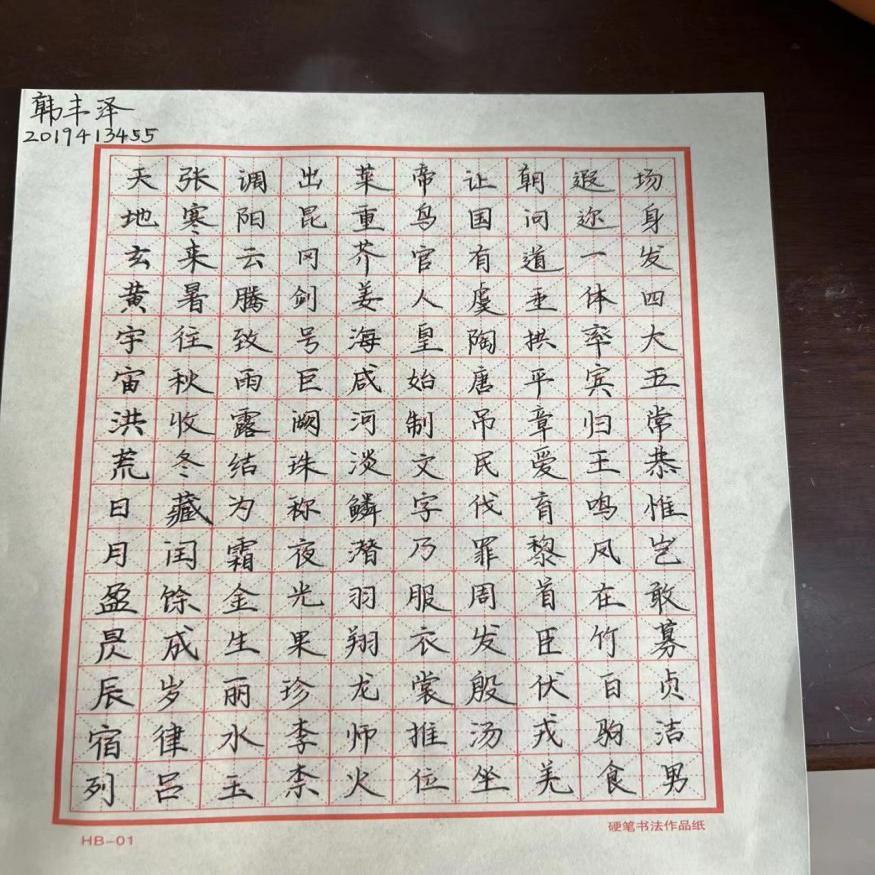 韩丰泽
2019413455
天地玄黄宇宙洪荒日月盈昃辰宿列
张寒来暑往秋收冬藏闰馀成岁律吕
调阳云腾致雨露结为霜金生丽水玉
出昆冈剑号巨阙珠称夜光果珍李柰
菜重芥姜海咸河淡鳞潜羽翔龙师火
帝鸟官人皇始制文字乃服衣裳推位
让国有虞陶唐吊民伐罪周发殷汤坐
朝问道垂拱平章爱育黎首臣伏戎羌
遐迩一体率宾归王鸣凤在竹白驹食
场身发四大五常恭惟岂敢募贞洁男
HB-01
硬笔书法作品纸